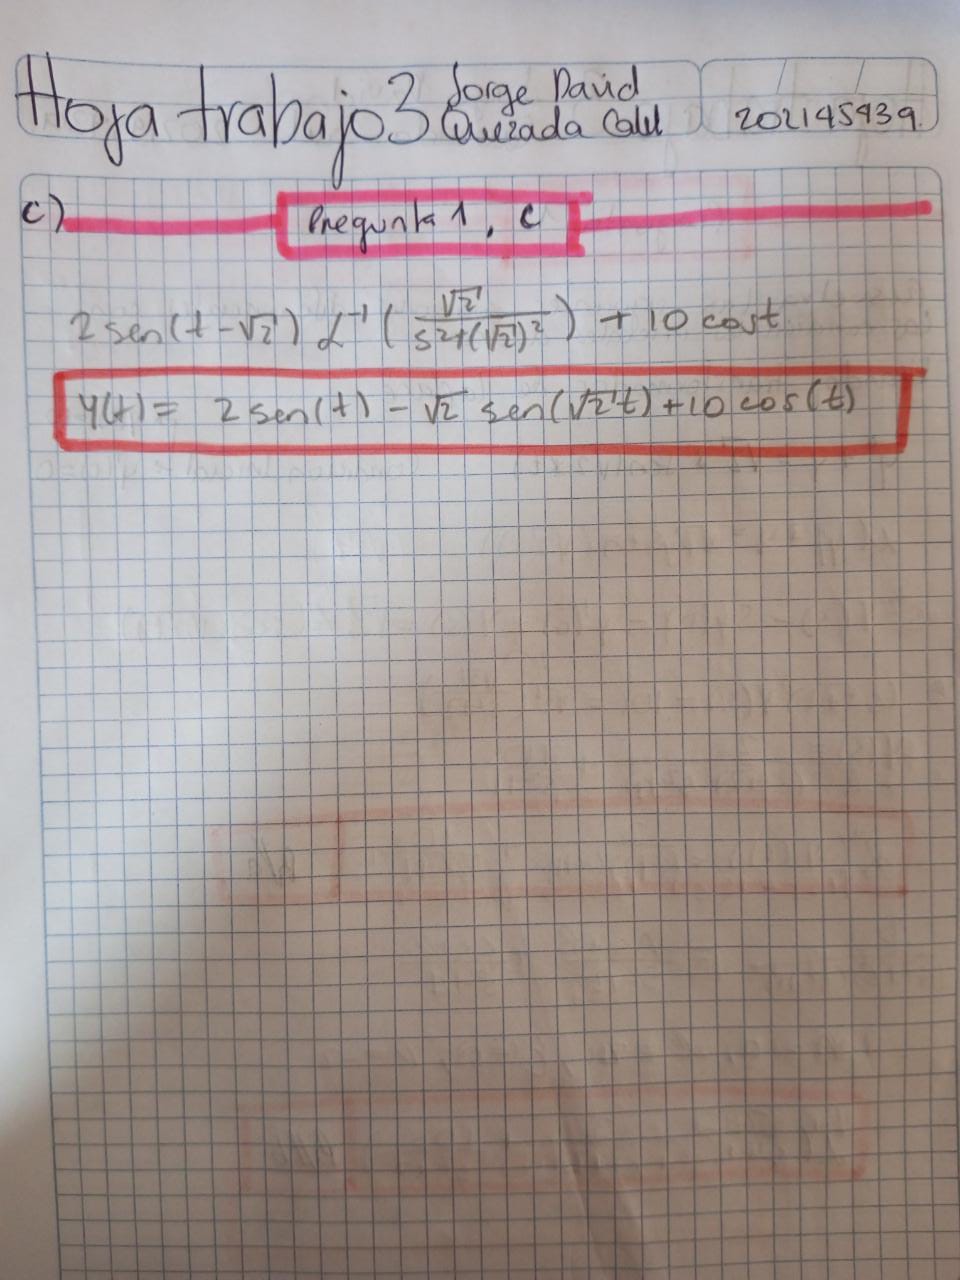 Hoja trabajo 3 Jorge David
Quezada Calel 202145939.
c) Pregunta 1, c
2 sen(t - √2) ℒ⁻¹ ( √2 / s²+(√2)² ) + 10 cost
y(t) = 2 sen(t) - √2 sen(√2 t) + 10 cos(t)